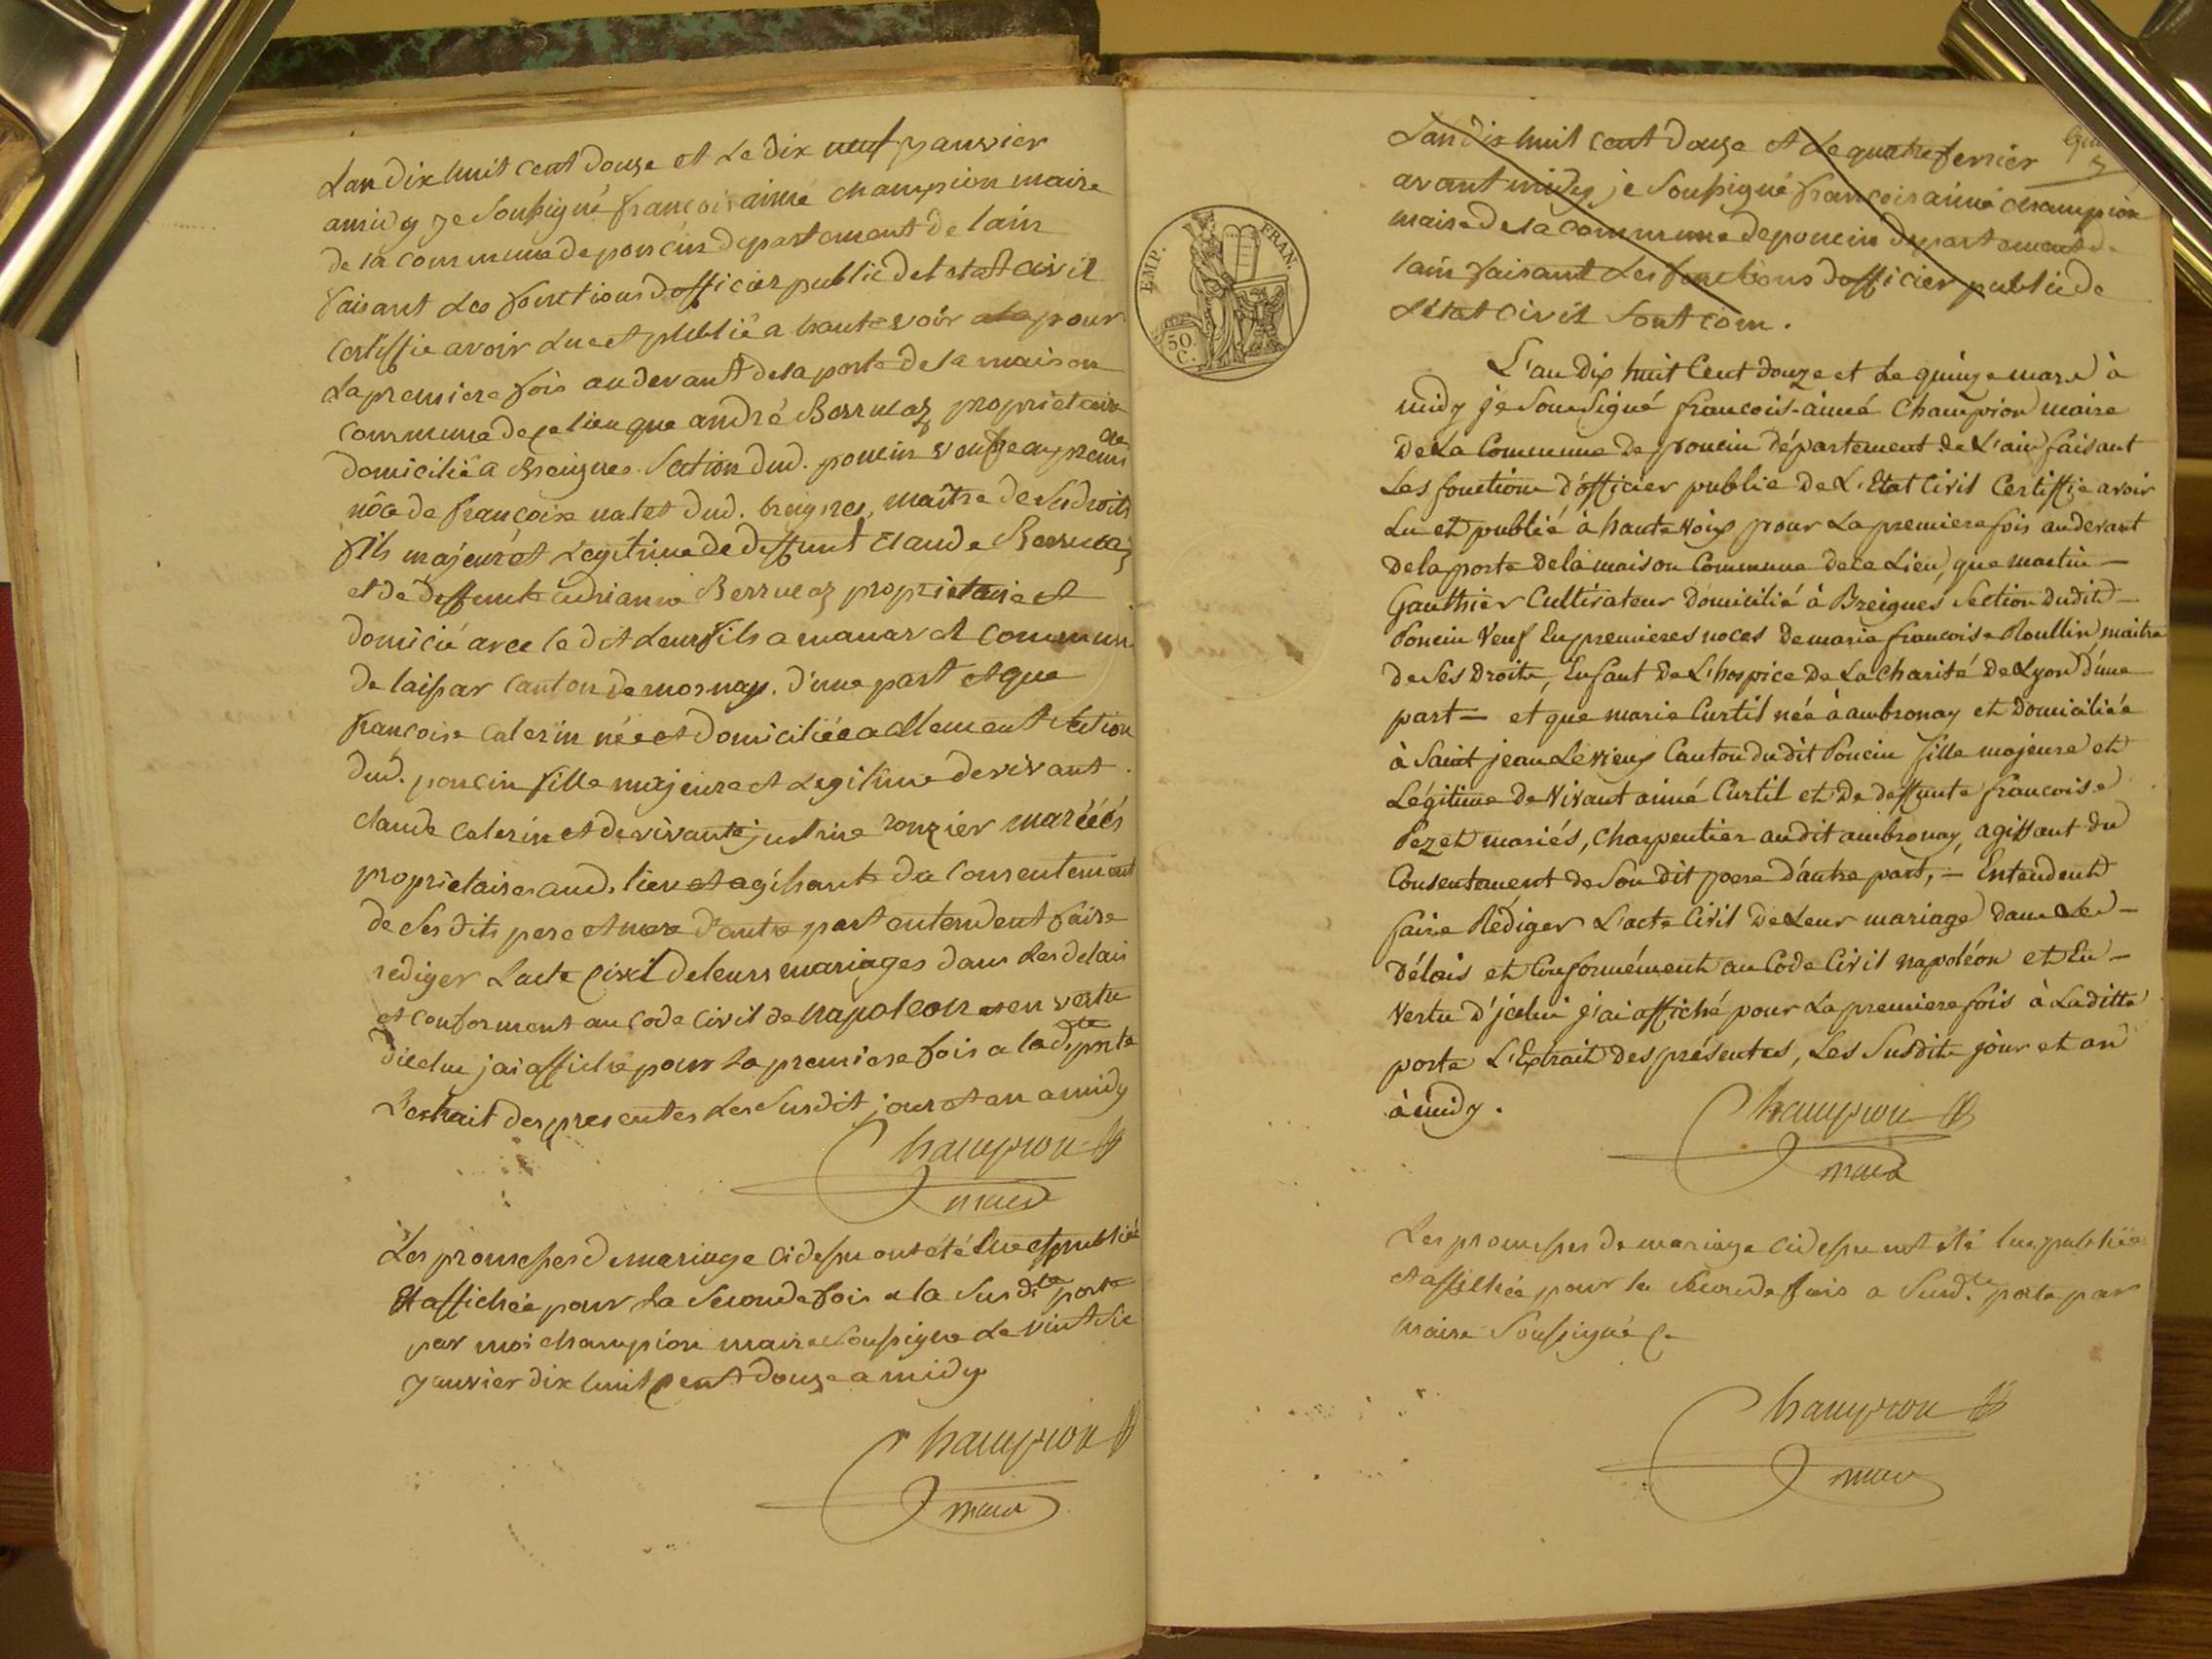 Lan dix huit cent douze et Le dix neuf janvier
amidy je Soussigné francois aimé champion maire
de la commune de poncin departement de lain
faisant Les fonctions dofficier public de letat civil
certiffie avoir Lu et publié a haute voix pour
La premiere fois au devant de la porte de la maison
commune de ce lieu que andré Berrucaz proprietaire
domicilié a Breignes Section dud. poncin veuf en premie
nôce de francoise natet dud. breignes, maître de ses droits
fils majeur et Legitime de deffunt Claude Berrucaz
et de deffunte Berrucaz proprietaire et
domicié avec le dit Leur fils a commune
de laissar canton de mornay. d'une part et que
francoise calerin née et domiciliée a allement Section
dud. poncin fille majeure et Legitime de vivant
claude calerin et de vivante justine ronzier mariés
proprietaires aud. lieu et agissante du consentement
de ses dits pere et mere d'autre part entendent faire
rediger Lacte civil de leurs mariages dans les delais
et conforment au code civil de napoleon et en vertu
dicelui jai affiché pour la premiere fois a la dte porte
L'extrait des presentes Les Susdit jour et an a midy
Champion
maire
Les promesses de mariage ci dessu ont été lue et publiée
Et affichée pour la Seconde fois a la Susdte porte
par moi champion maire Soussigne Le vint sie
janvier dix huit cent douze a midy
Champion
maire
EMP. FRAN.
50 C.
Lan dix huit cent douze et Le quatre fevrier
avant midy je Soussigné francois aimé champion
maire de la commune de poncin departement de
lain faisant Les fonctions dofficier public de
Létat civil Sont com.
L'an dix huit Cent douze et Le quinze mars à
midy je Soussigné francois-aimé Champion maire
De La Commune de poncin département de L'ain faisant
Les fonctions d'officier public de L'Etat Civil Certiffie avoir
Lu et publié à haute voix pour La premiere fois au devant
De la porte de la maison Commune de ce Lieu, que martin —
Gauthier Cultivateur Domicilié à Breignes Section dudit —
Poncin Veuf En premieres noces De marie francoise Roullin maitre
de Ses Droits, Enfant De L'hospice De La Charité De Lyon d'une
part — et que marie Curtil née à ambronay et Domiciliée
à Saint jean Le vieux Canton du dit Poncin fille majeure et
Légitime de Vivant aimé Curtil et De deffunte francoise
Pezet mariés, Charpentier au dit ambronay, agissant du
Consentement de Son dit pere D'autre part, — Entendent
faire Rédiger L'acte Civil De Leur mariage dans Les —
Délais et Conformément au Code Civil napoléon et En —
Vertu D'jcelui j'ai affiché pour La premiere fois à Laditte
porte L'Extrait des présentes, Les Susdits jour et an
à midy.
Champion
maire
Les promesses de mariage ci dessu ont été lue publiée
et affichée pour la Seconde fois a Susd.te porte par
maire Soussigné
Champion
maire